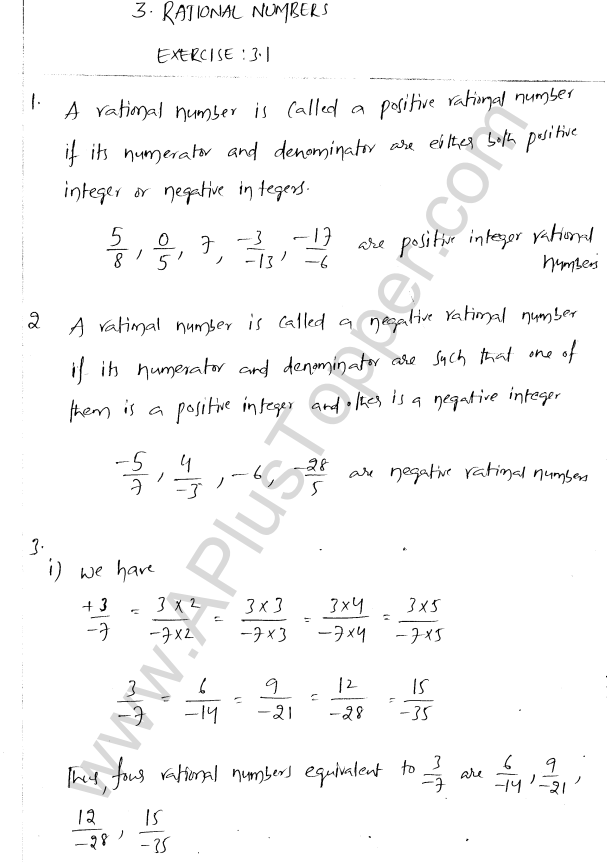 3. RATIONAL NUMBERS
EXERCISE : 3.1
1. A rational number is called a positive rational number
if its numerator and denominator are either both positive
integer or negative integers.
5/8, 0/5, 7, -3/-13, -17/-6 are positive integer rational
numbers
2 A rational number is called a negative rational number
if its numerator and denominator are such that one of
them is a positive integer and other is a negative integer
-5/7, 4/-3, -6, -28/5 are negative rational numbers
3.
i) we have
+3/-7 = 3×2/-7×2 = 3×3/-7×3 = 3×4/-7×4 = 3×5/-7×5
3/-7 = 6/-14 = 9/-21 = 12/-28 = 15/-35
Thus, four rational numbers equivalent to 3/-7 are 6/-14, 9/-21,
12/-28, 15/-35
www.APlusTopper.com